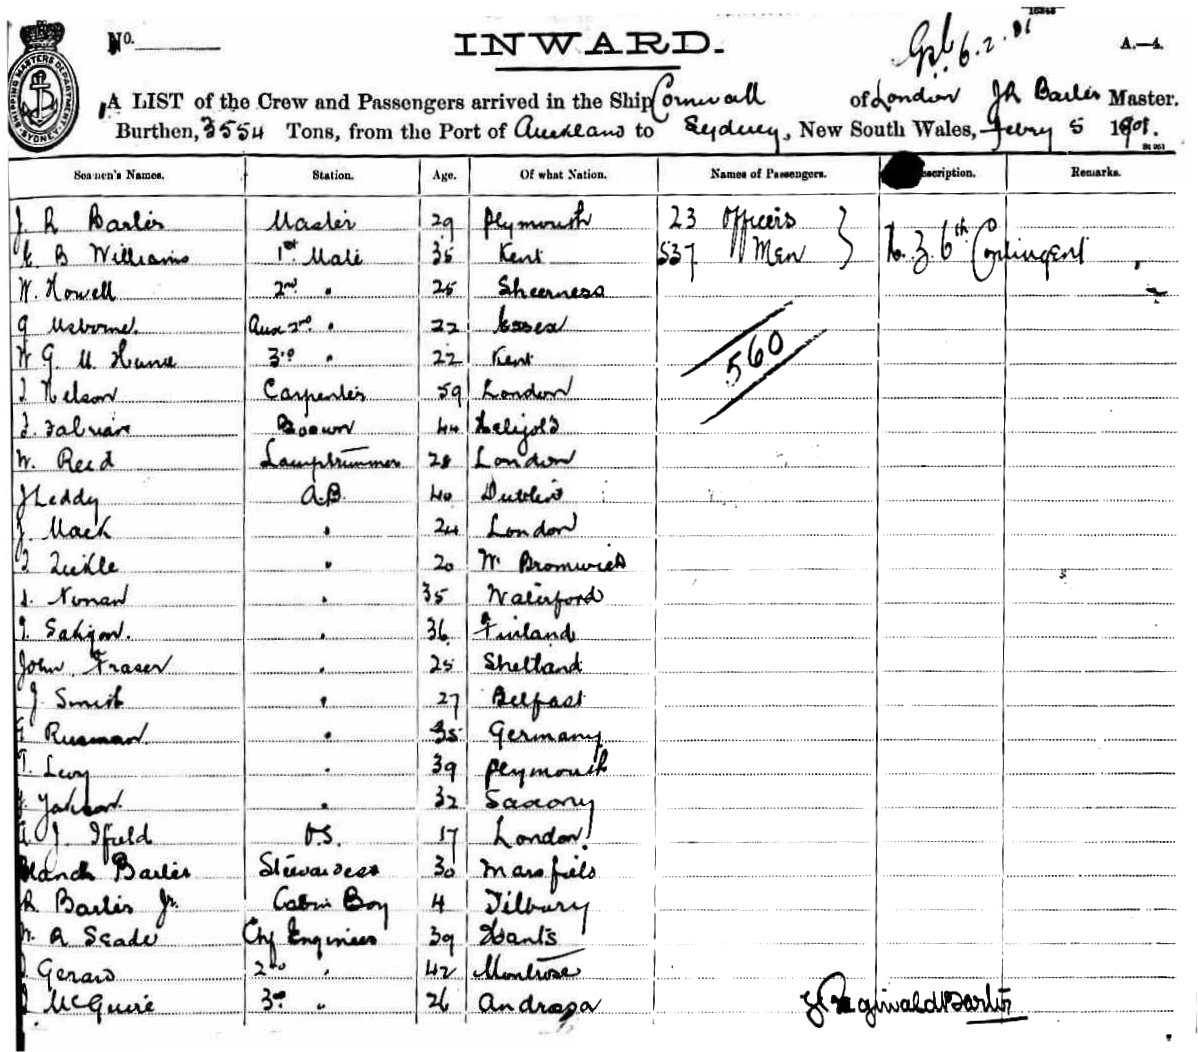 SHIPPING MASTERS DEPARTMENT SYDNEY
No.
INWARD.
6.2.01
A.—4.
A LIST of the Crew and Passengers arrived in the Ship Cornwall of London J R Barter Master.
Burthen, 3554 Tons, from the Port of Auckland to Sydney, New South Wales, Febry 5 1901.
Seamen's Names. Station. Age. Of what Nation. Names of Passengers. Description. Remarks.
J. R Barter Master 29 Plymouth 23 Officers
E B Williams 1st Mate 35 Kent 537 Men N.Z. 6th Contingent
W. Howell 2nd " 25 Sheerness
G Usborne. Aux 2nd " 22 Essex
W G U 3rd " 22 Kent 560
Nelson Carpenter 59 London
Fabrian Bosun 44
W. Reed Lamptrimmer 28 London
J Leddy A.B. 40 Dublin
J. Mack " 24 London
" 20 W. Bromwich
Nunan " 35 Waterford
" 36 Finland
John Fraser " 25 Shetland
J Smith " 27 Belfast
Rusman " 35 Germany
T. Levy " 39 Plymouth
" 32 Saxony
A. J. Ifield O.S. 17 London
Blanch Barter Stewardess 30 Marsfield
R. Barter Jr. Cabin Boy 4 Tilbury
W. R Seade Chf Engineer 39 Hants
Gerard 2nd " 42 Montrose
McGuire 3rd " 26
J Reginald Barter